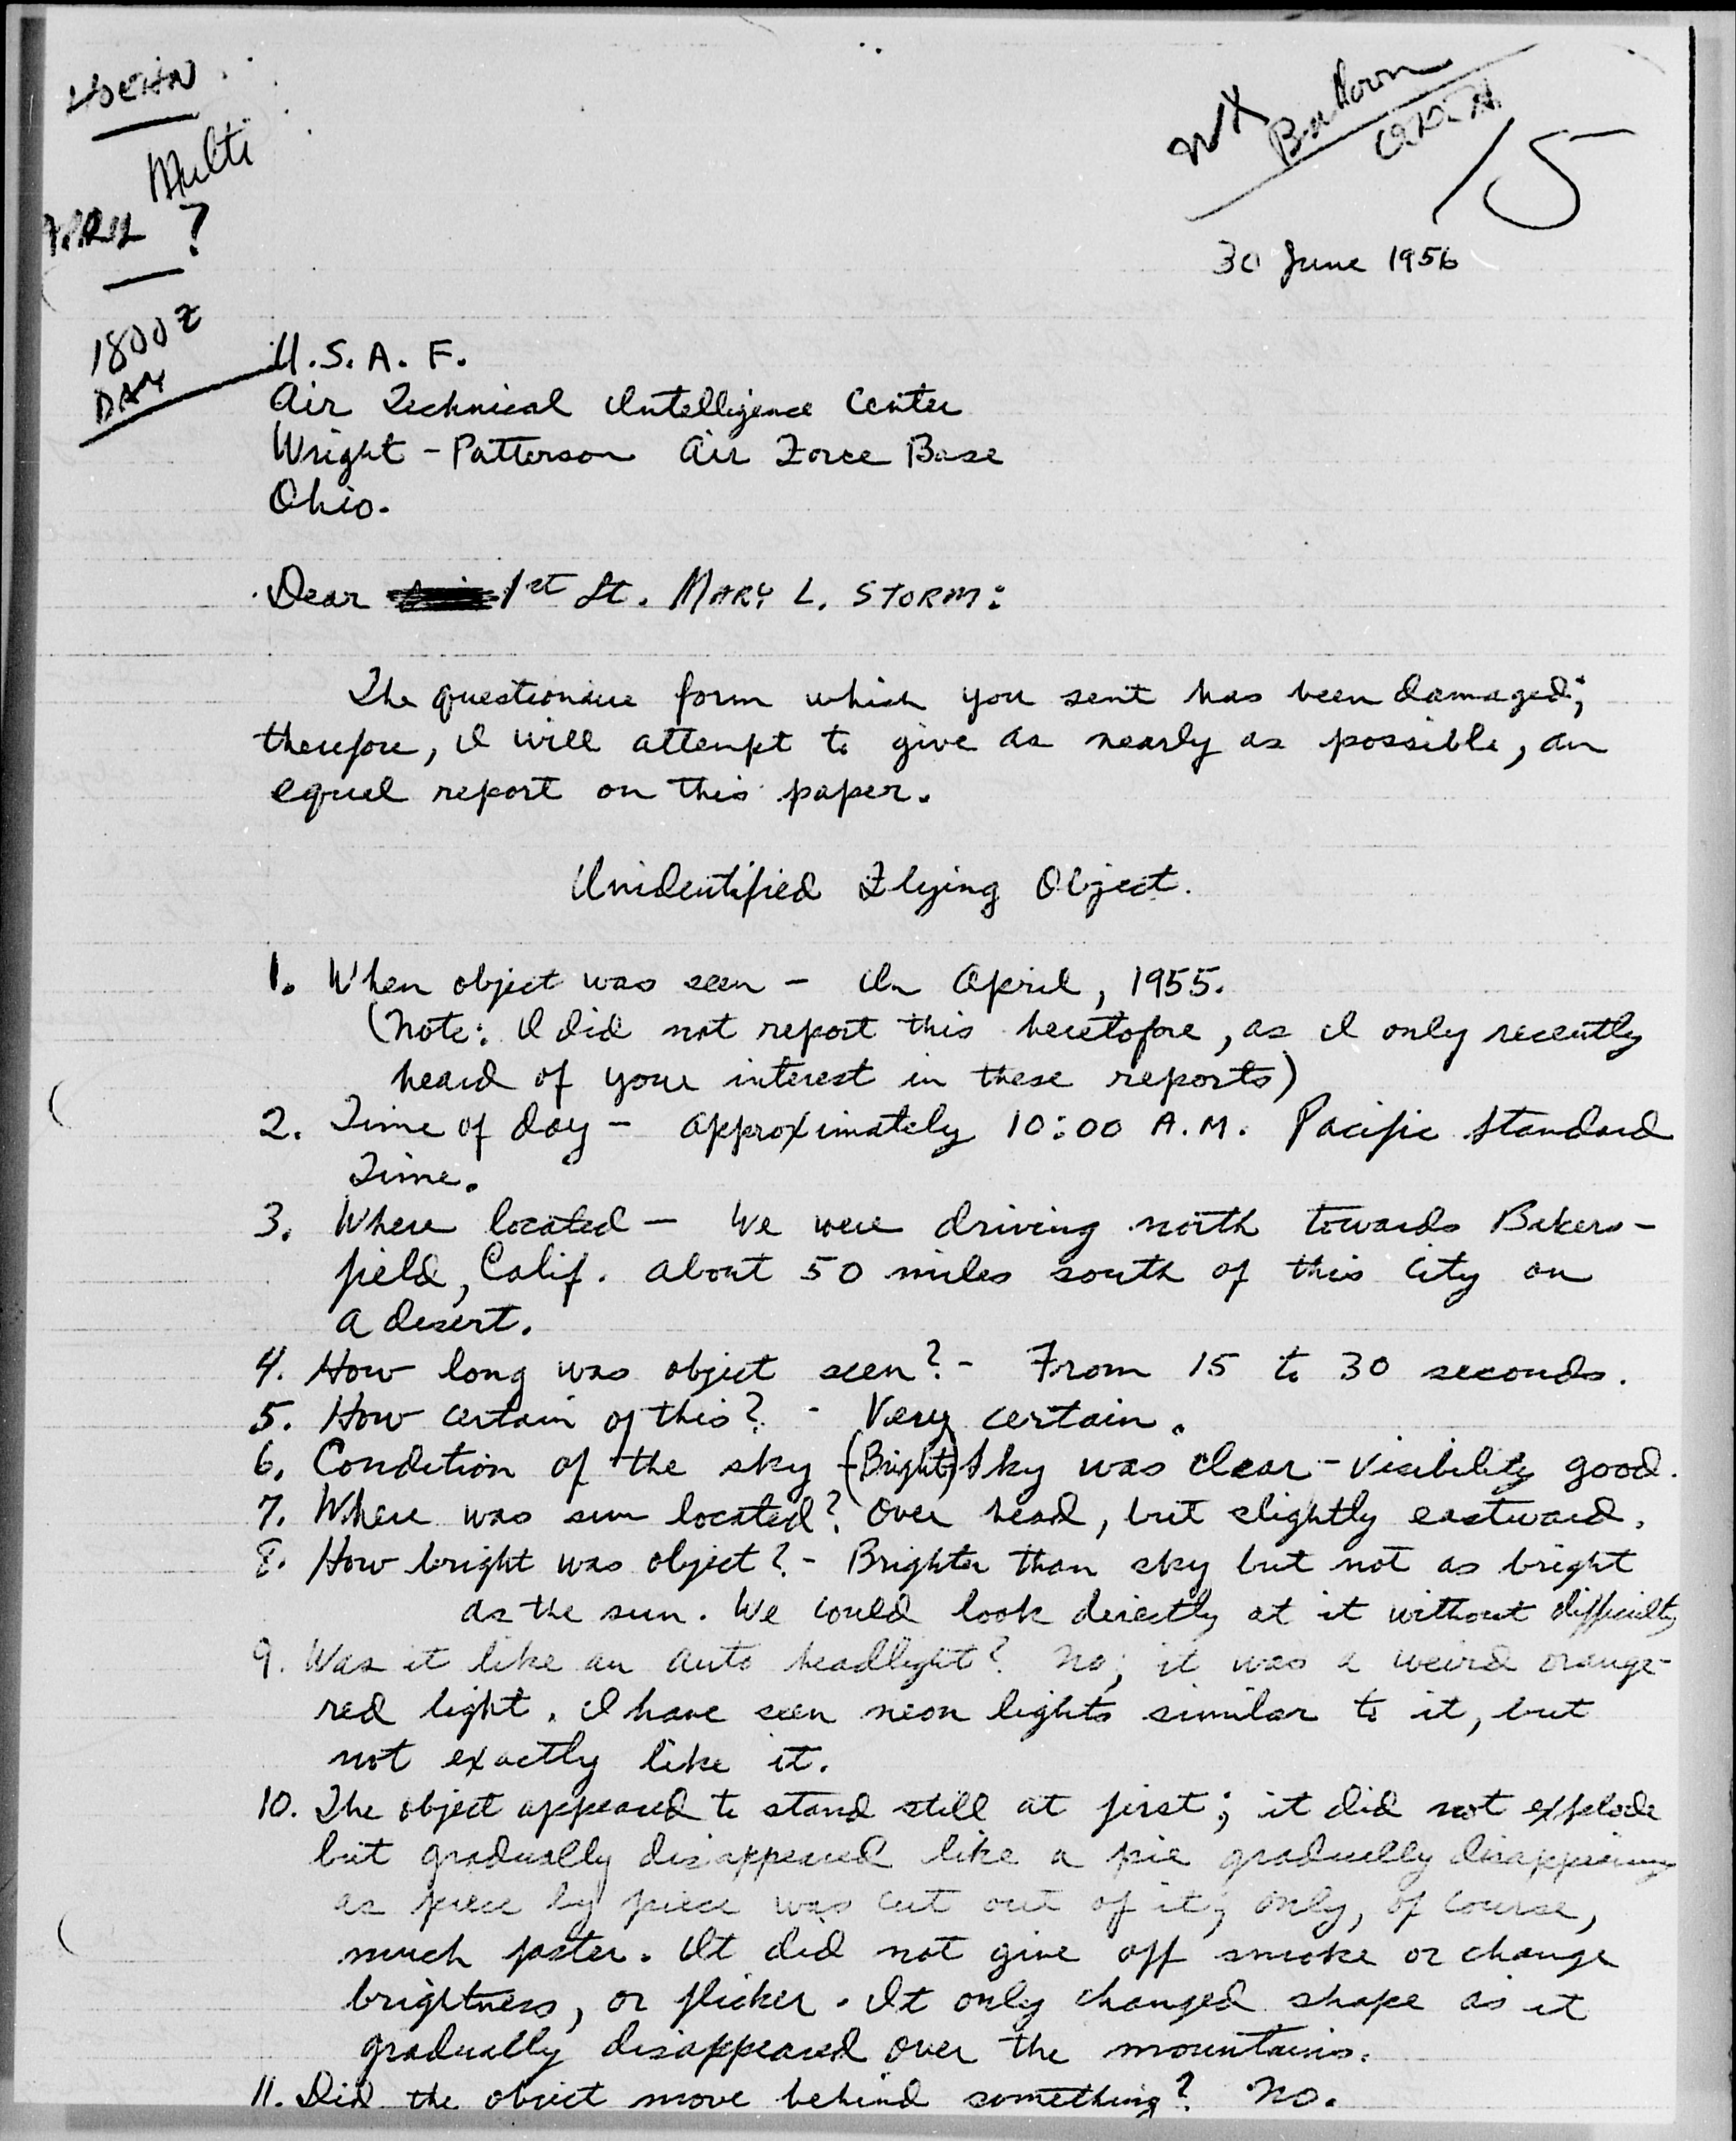 Multi
APRIL ?
1800 Z
DAY
WX
15
30 June 1956
U.S.A.F.
Air Technical Intelligence Center
Wright-Patterson Air Force Base
Ohio.
Dear 1st Lt. MARY L. STORM:
The questionaire form which you sent has been damaged;
therefore, I will attempt to give as nearly as possible, an
equal report on this paper.
Unidentified Flying Object.
1. When object was seen - In April, 1955.
(Note: I did not report this heretofore, as I only recently
heard of your interest in these reports)
2. Time of day - approximately 10:00 A.M. Pacific Standard
Time.
3. Where located - We were driving north towards Bakers-
field, Calif. about 50 miles south of this city on
a desert.
4. How long was object seen? - From 15 to 30 seconds.
5. How certain of this? - Very certain.
6. Condition of the sky - (Bright) Sky was clear - visibility good.
7. Where was sun located? Over head, but slightly eastward.
8. How bright was object? - Brighter than sky but not as bright
as the sun. We could look directly at it without difficulty
9. Was it like an auto headlight? No; it was a weird orange-
red light. I have seen neon lights similar to it, but
not exactly like it.
10. The object appeared to stand still at first; it did not explode
but gradually disappeared like a pie gradually disappearing
as piece by piece was cut out of it; only, of course,
much faster. It did not give off smoke or change
brightness, or flicker. It only changed shape as it
gradually disappeared over the mountains.
11. Did the object move behind something? No.